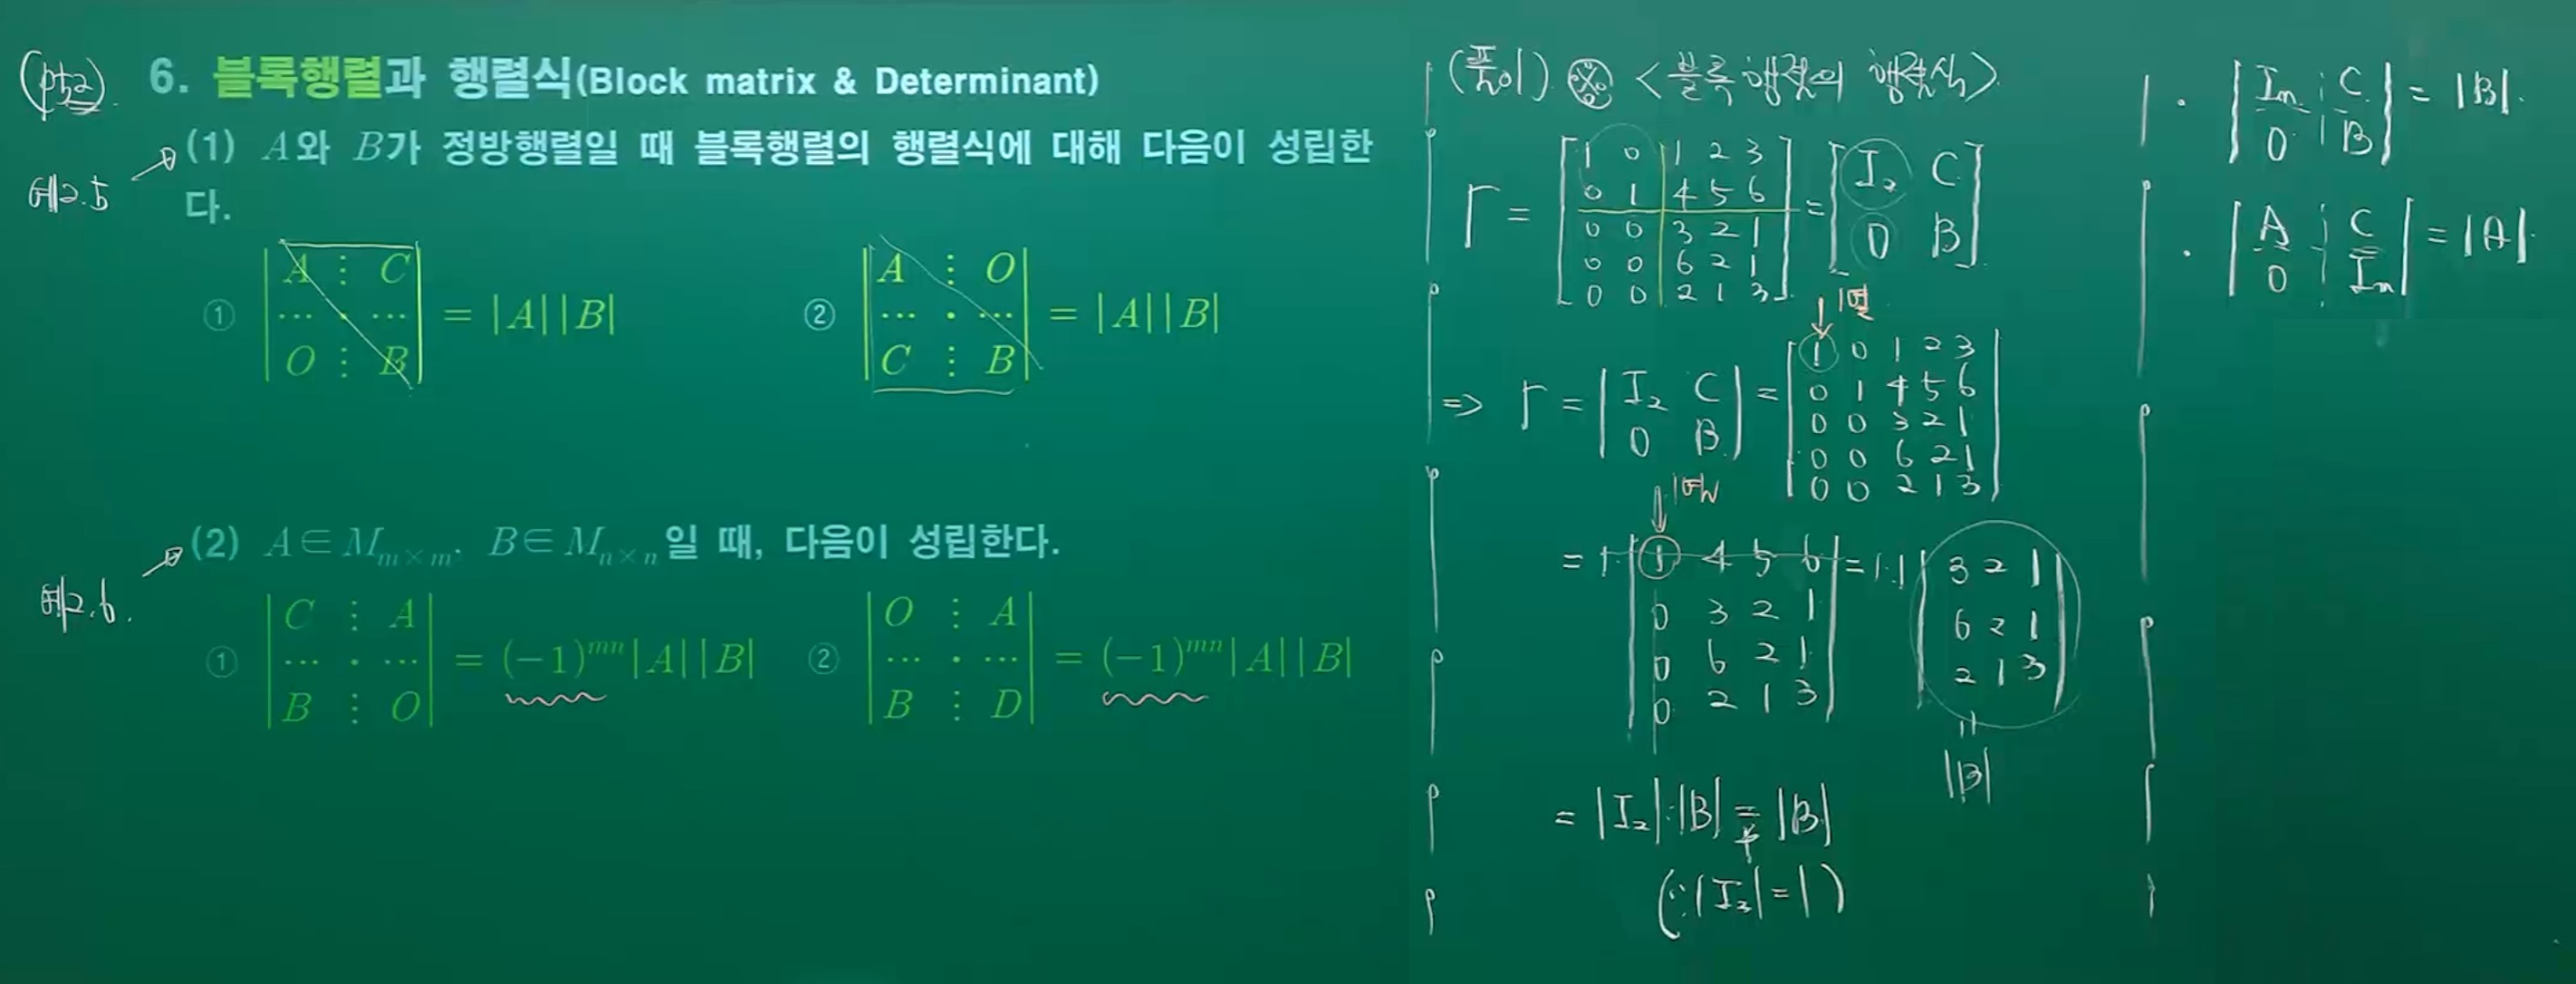 (pt2) 6. 블록행렬과 행렬식(Block matrix & Determinant)
예2.5 (1) A와 B가 정방행렬일 때 블록행렬의 행렬식에 대해 다음이 성립한
다.
① |A ⋮ C|
|⋯ · ⋯| = |A||B|
|O ⋮ B|
② |A ⋮ O|
|⋯ · ⋯| = |A||B|
|C ⋮ B|
예2.6. (2) A∈M_{m×m}, B∈M_{n×n}일 때, 다음이 성립한다.
① |C ⋮ A|
|⋯ · ⋯| = (-1)^{mn}|A||B|
|B ⋮ O|
② |O ⋮ A|
|⋯ · ⋯| = (-1)^{mn}|A||B|
|B ⋮ D|
(풀이) ※ <블록행렬의 행렬식>
Γ =
[1 0 1 2 3]
[0 1 4 5 6]
[0 0 3 2 1]
[0 0 6 2 1]
[0 0 2 1 3]
=
[I₂ C]
[O B]
↓ 1열
⇒ Γ =
|I₂ C|
|O B|
=
|1 0 1 2 3|
|0 1 4 5 6|
|0 0 3 2 1|
|0 0 6 2 1|
|0 0 2 1 3|
⇓ 1열
= 1·
|1 4 5 6|
|0 3 2 1|
|0 6 2 1|
|0 2 1 3|
= 1·1
|3 2 1|
|6 2 1|
|2 1 3|
=
|B|
= |I₂|·|B| = |B|
(∵|I₂|=1)
· |Iₘ ⋮ C|
|O ⋮ B| = |B|.
· |A ⋮ C|
|O ⋮ Iₘ| = |A|.